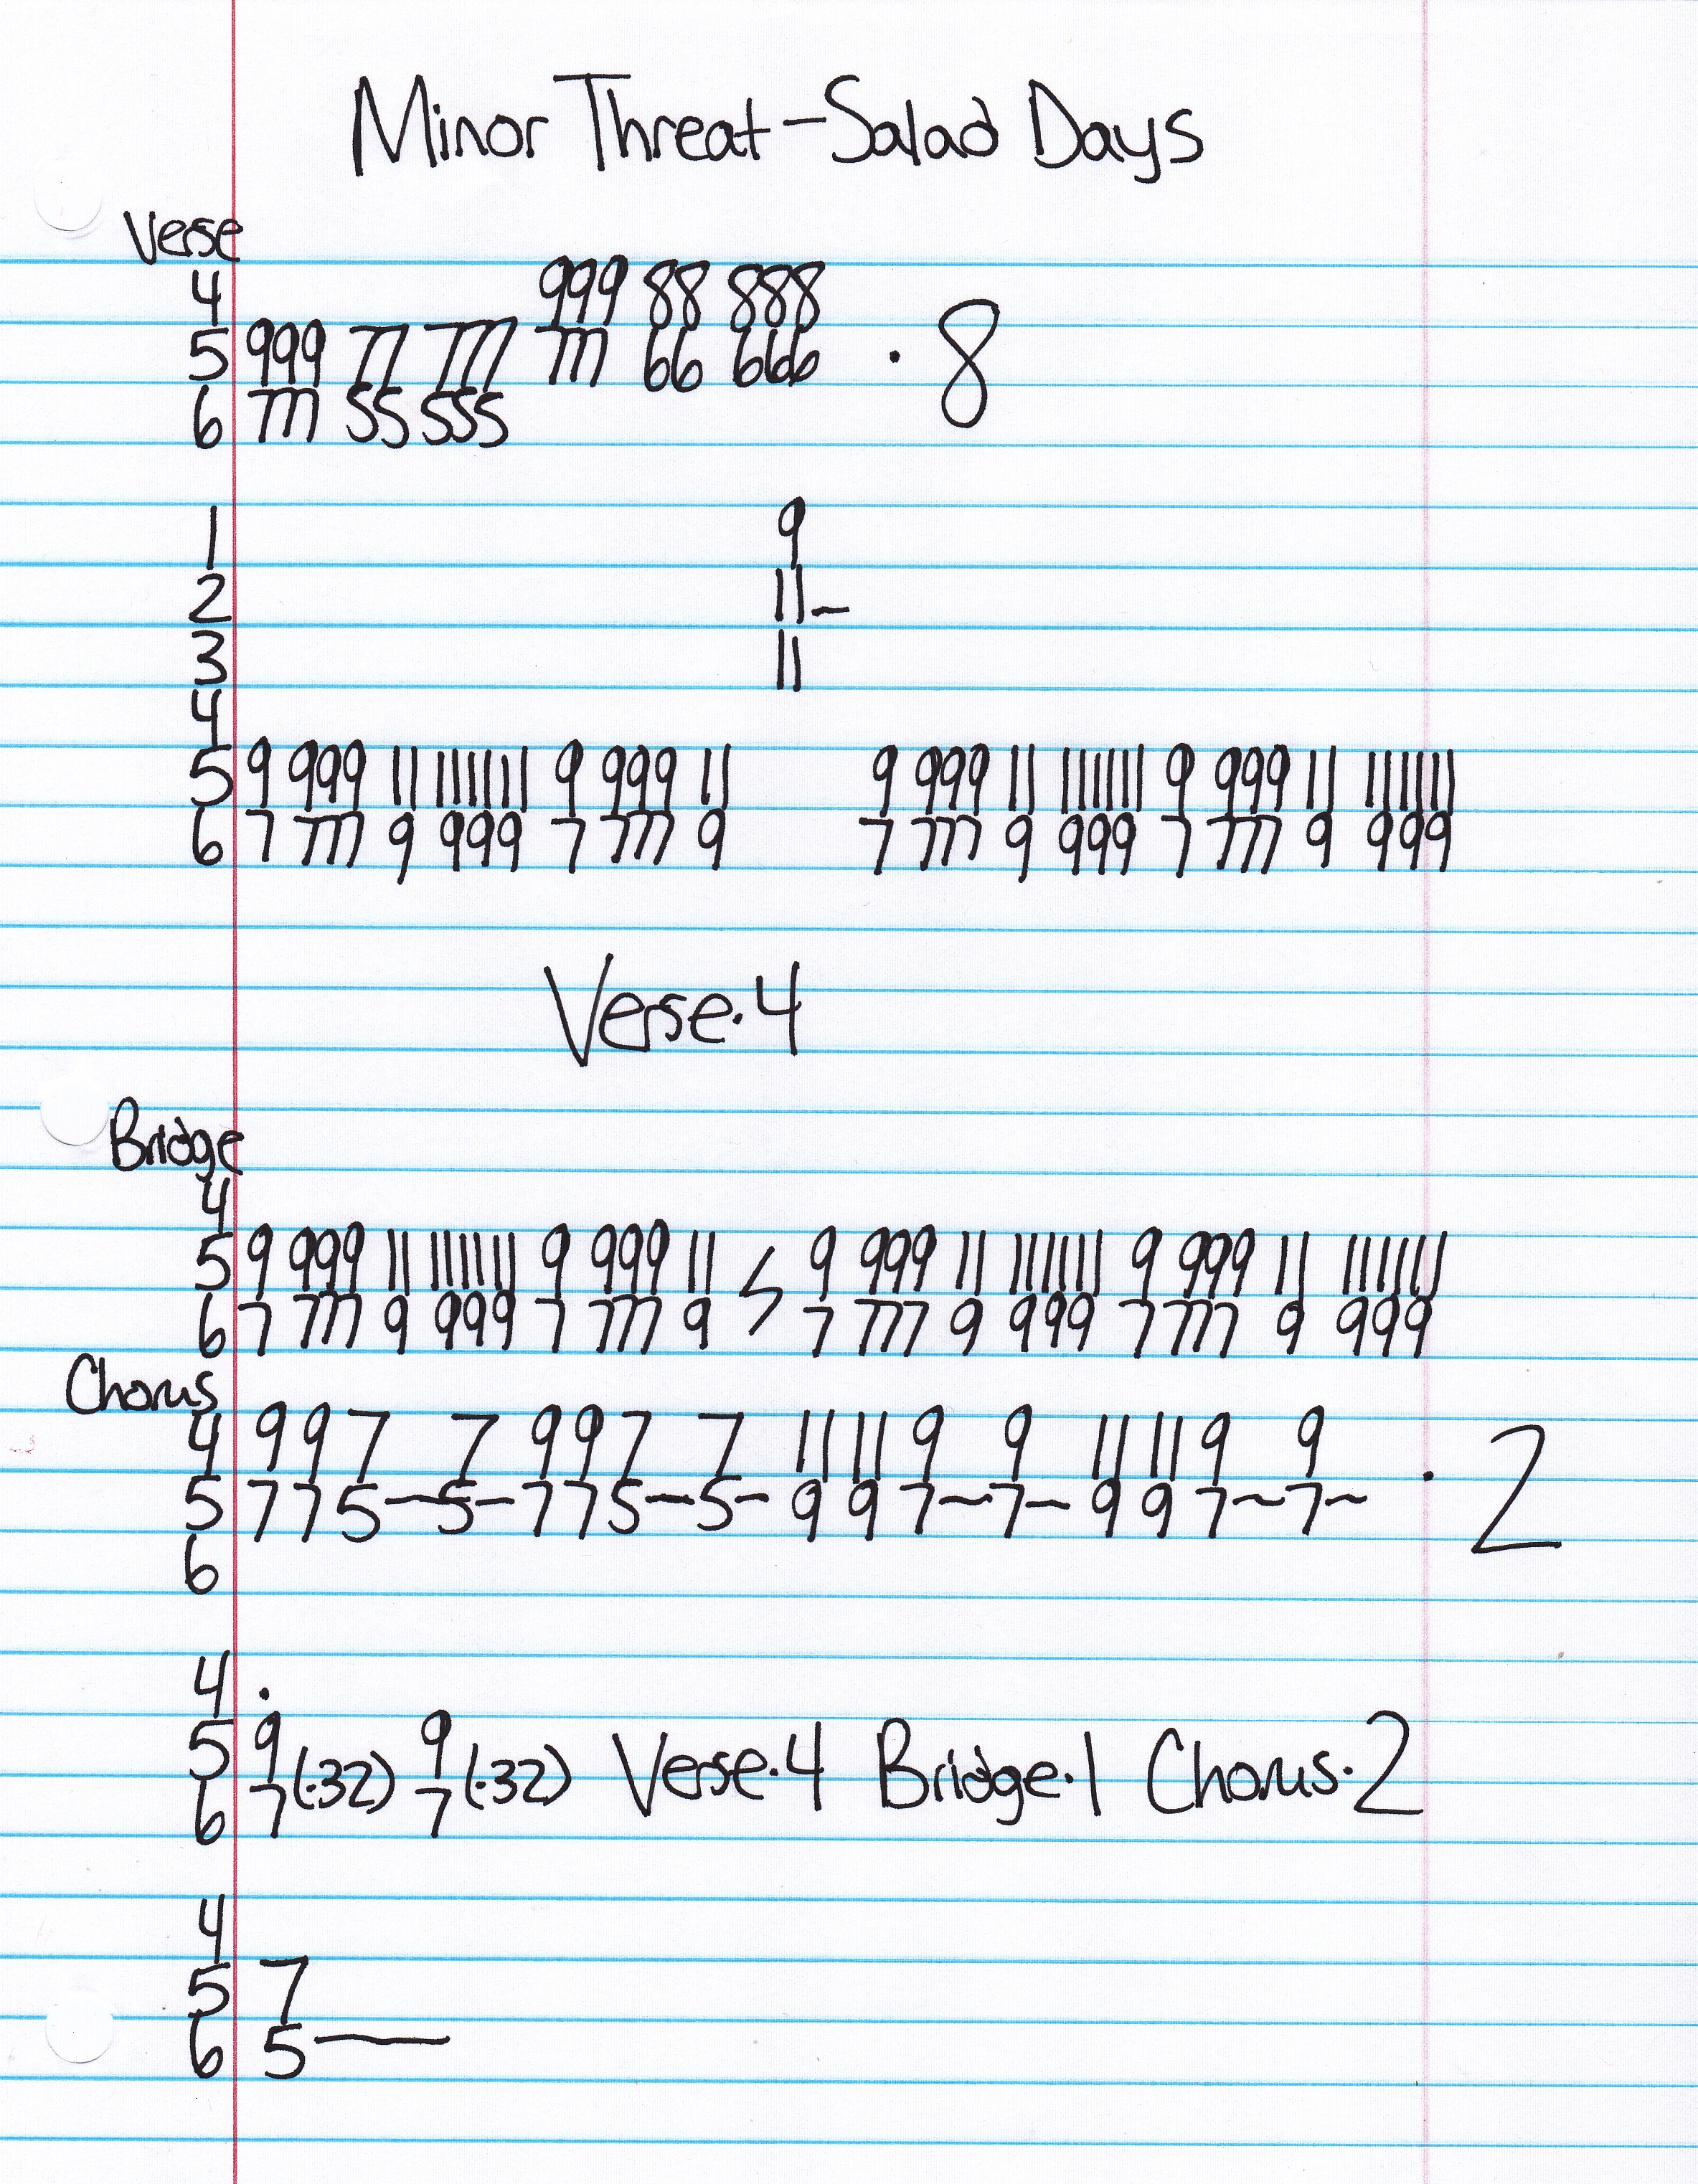 Minor Threat - Salad Days
Verse
4 999 88 888
5 999 77 777 777 66 666 · 8
6 777 55 555
1 9
2 11~
3 11
4
5 9 999 11 111111 9 999 11 9 999 11 111111 9 999 11 111111
6 7 777 9 999 7 777 9 7 777 9 999 7 777 9 999
Verse·4
Bridge
4
5 9 999 11 111111 9 999 11 9 999 11 111111 9 999 11 111111
6 7 777 9 999 7 777 9 7 777 9 999 7 777 9 999
Chorus
4 9 9 7 7 9 9 7 7 11 11 9 9 11 11 9 9 · 2
5 7 7 5~5~ 7 7 5~5~ 9 9 7~7~ 9 9 7~7~
6
4 ·
5 9 (·32) 9 (·32) Verse·4 Bridge·1 Chorus·2
6 7 7
4
5 7
6 5—